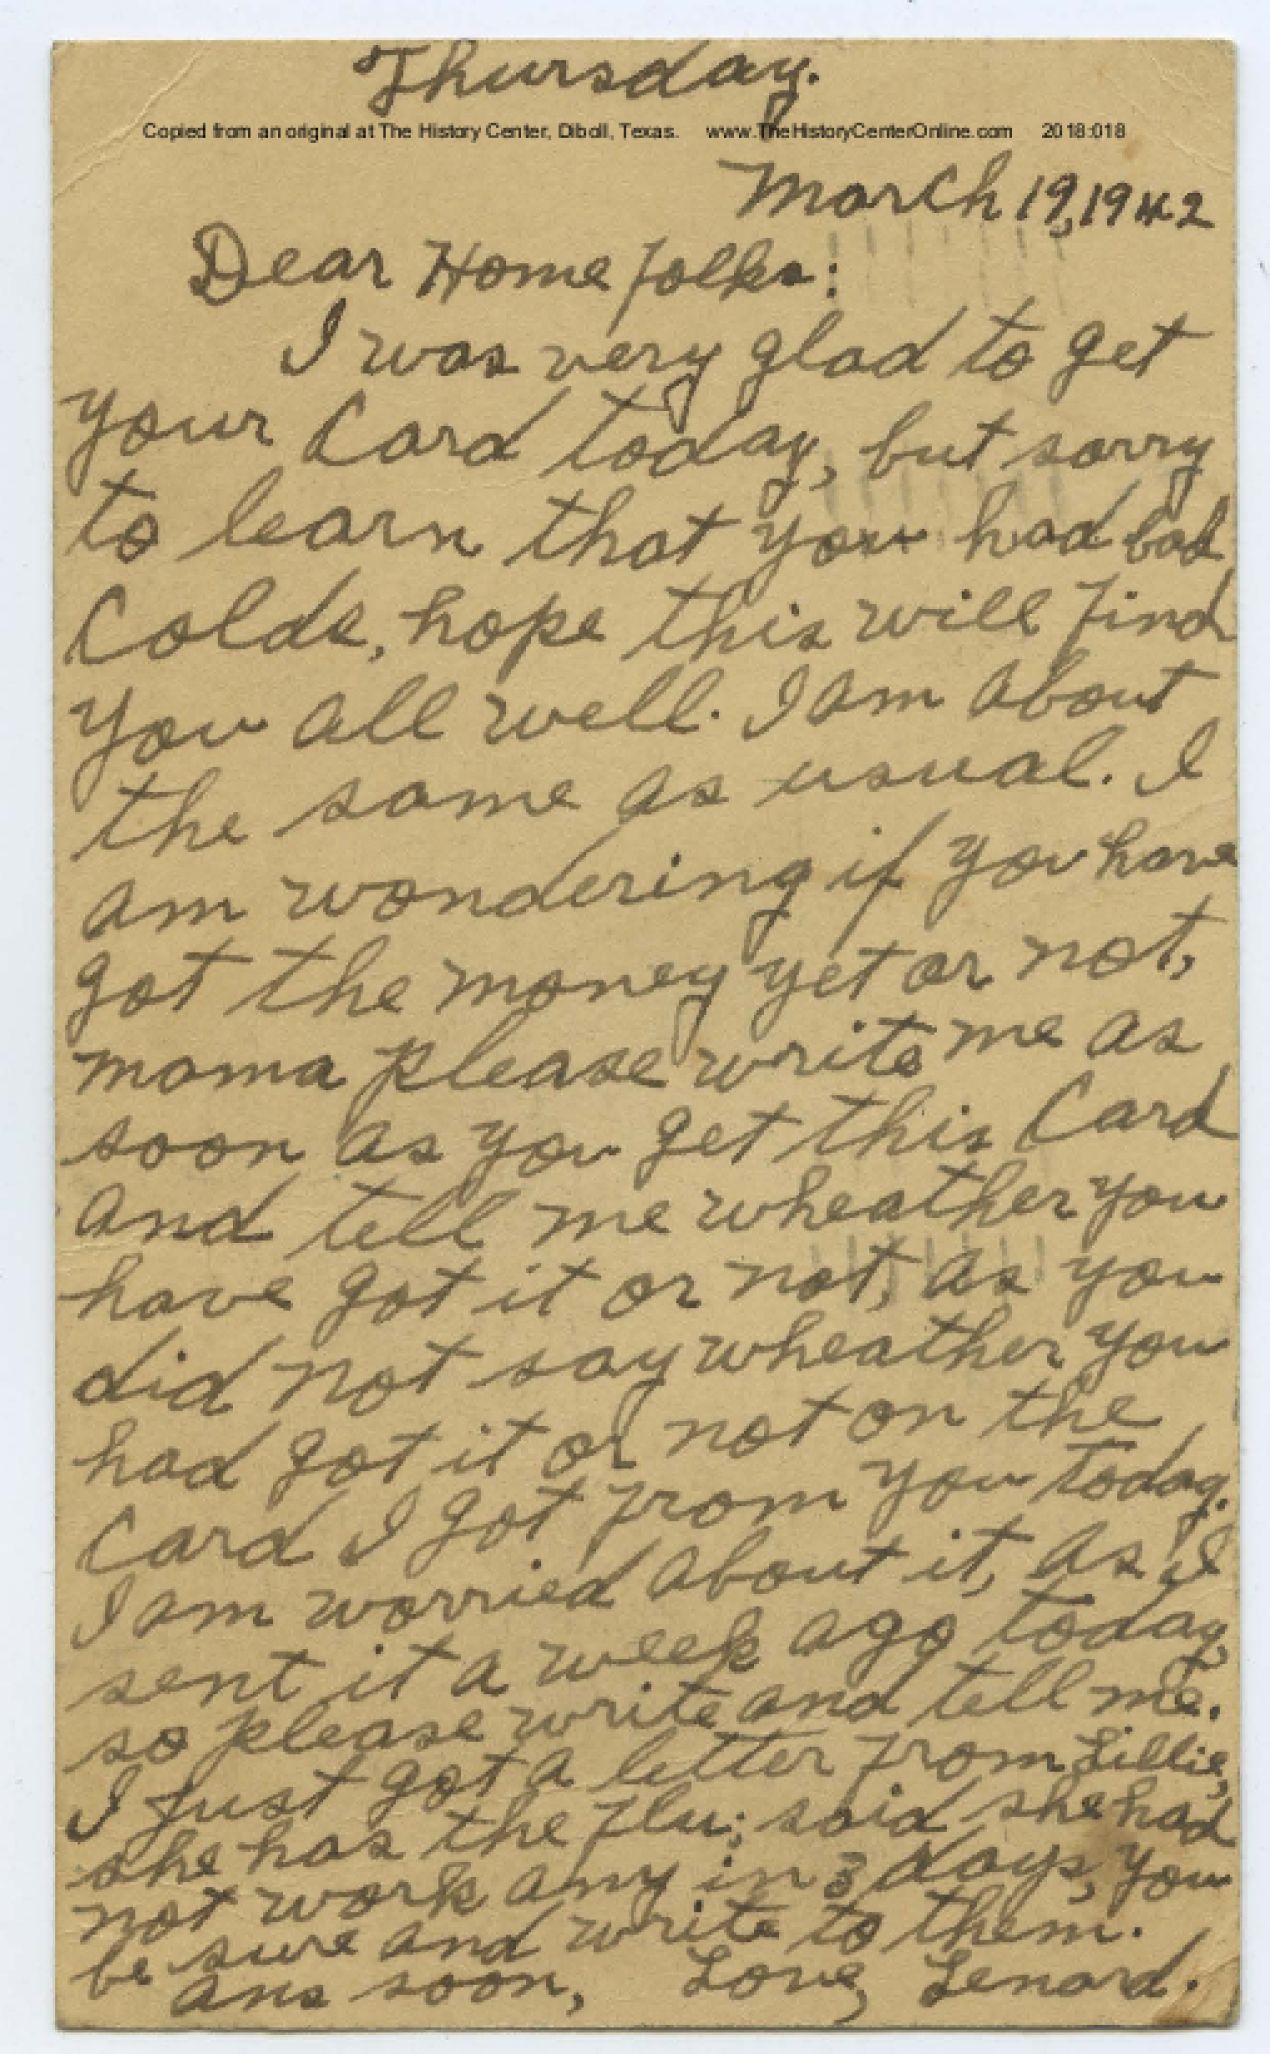 Thursday.
Copied from an original at The History Center, Diboll, Texas. www.TheHistoryCenterOnline.com 2018:018
March 19, 1942
Dear Home folks:
I was very glad to get
your Card today, but sorry
to learn that you had bad
Colds, hope this will find
you all well. I am about
the same as usual. I
am wondering if you have
got the money yet or not,
moma please write me as
soon as you get this Card
and tell me wheather you
have got it or not, as you
did not say wheather you
had got it or not on the
Card I got from you today.
I am worried about it, as I
sent it a week ago today,
so please write and tell me.
I just got a letter from Lillie,
she has the flu; said she had
not work any in 3 days, you
be sure and write to them.
ans soon, Love, Lenard.